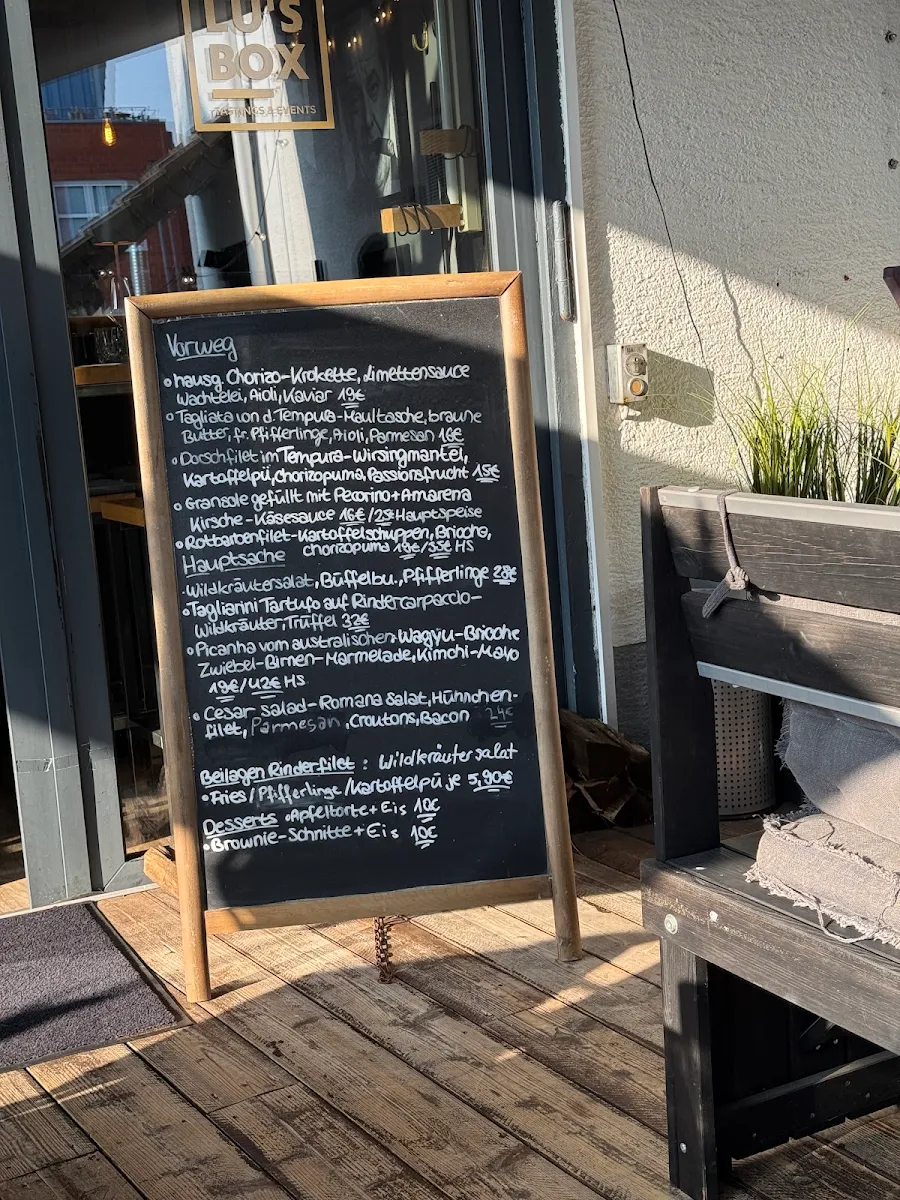 LU'S
BOX
TASTINGS & EVENTS
Vorweg
hausg. Chorizo-Krokette, Limettensauce
Wachtelei, Aioli, Kaviar 19€
Tagliata von d. Tempura-Maultasche, braune
Butter, fr. Pfifferlinge, Aioli, Parmesan 16€
Dorschfilet im Tempura-Wirsingmantel,
Kartoffelpü, Chorizopuma, Passionsfrucht 15€
gefüllt mit Pecorino + Amarena
Kirsche-Käsesauce 16€ / Hauptspeise
Rotbarbenfilet-Kartoffelschuppen, Brioche,
Hauptsache Chorizopuma HS
Wildkräutersalat, Büffelbu., Pfifferlinge 28€
Taglianni Tartufo auf Rindercarpaccio-
Wildkräuter, Trüffel 32€
Picanha vom australischen Wagyu-Brioche
Zwiebel-Birnen-Marmelade, Kimchi-Mayo
19€/42€ HS
Cesar Salad-Romana Salat, Hühnchen-
filet, Parmesan, Croutons, Bacon 24€
Beilagen Rinderfilet : Wildkräutersalat
Fries/Pfifferlinge/Kartoffelpü je 5,90€
Desserts Apfeltorte + Eis 10€
Brownie-Schnitte + Eis 10€